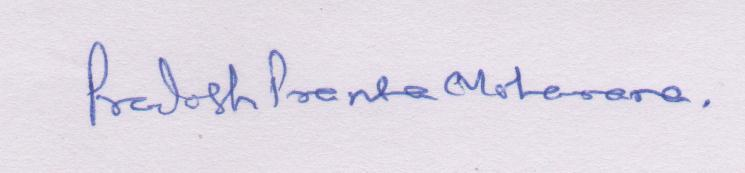 Pradosh Pranta Moharana.